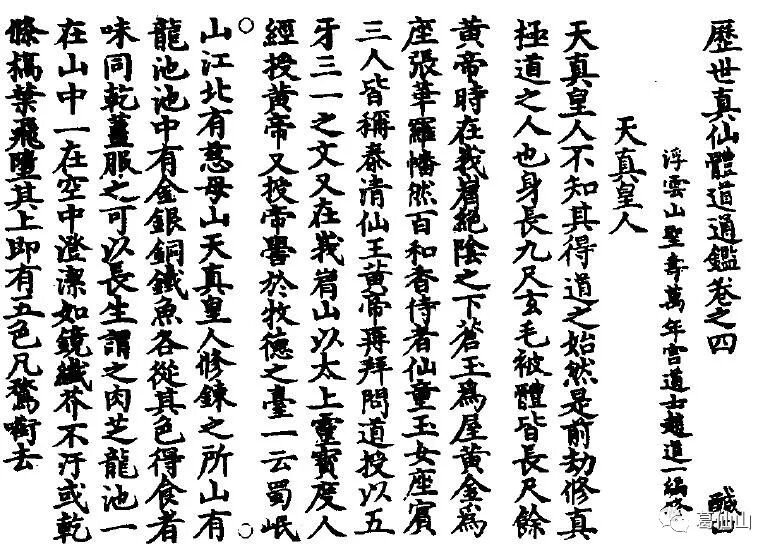 歷世真仙體道通鑑卷之四
鹹四
浮雲山聖壽萬年宮道士趙道一編修
天真皇人
天真皇人不知其得道之始然是前劫修真
極道之人也身長九尺玄毛被體皆長尺餘
黃帝時在峩嵋絕陰之下蒼玉為屋黃金為
座張華羅幡然百和香侍者仙童玉女座賓
三人皆稱泰清仙王黃帝再拜問道授以五
牙三一之文又在峩嵋山以太上靈寶度人
經授黃帝又授帝嚳於牧德之臺一云蜀岷
山江北有慈母山天真皇人修鍊之所山有
龍池池中有金銀銅鐵魚各從其色得食者
味同乾薑服之可以長生謂之肉芝龍池一
在山中一在空中澄潔如鏡纖芥不汙或乾
條槁葉飛墮其上即有五色凡鶩啣去
葛仙山